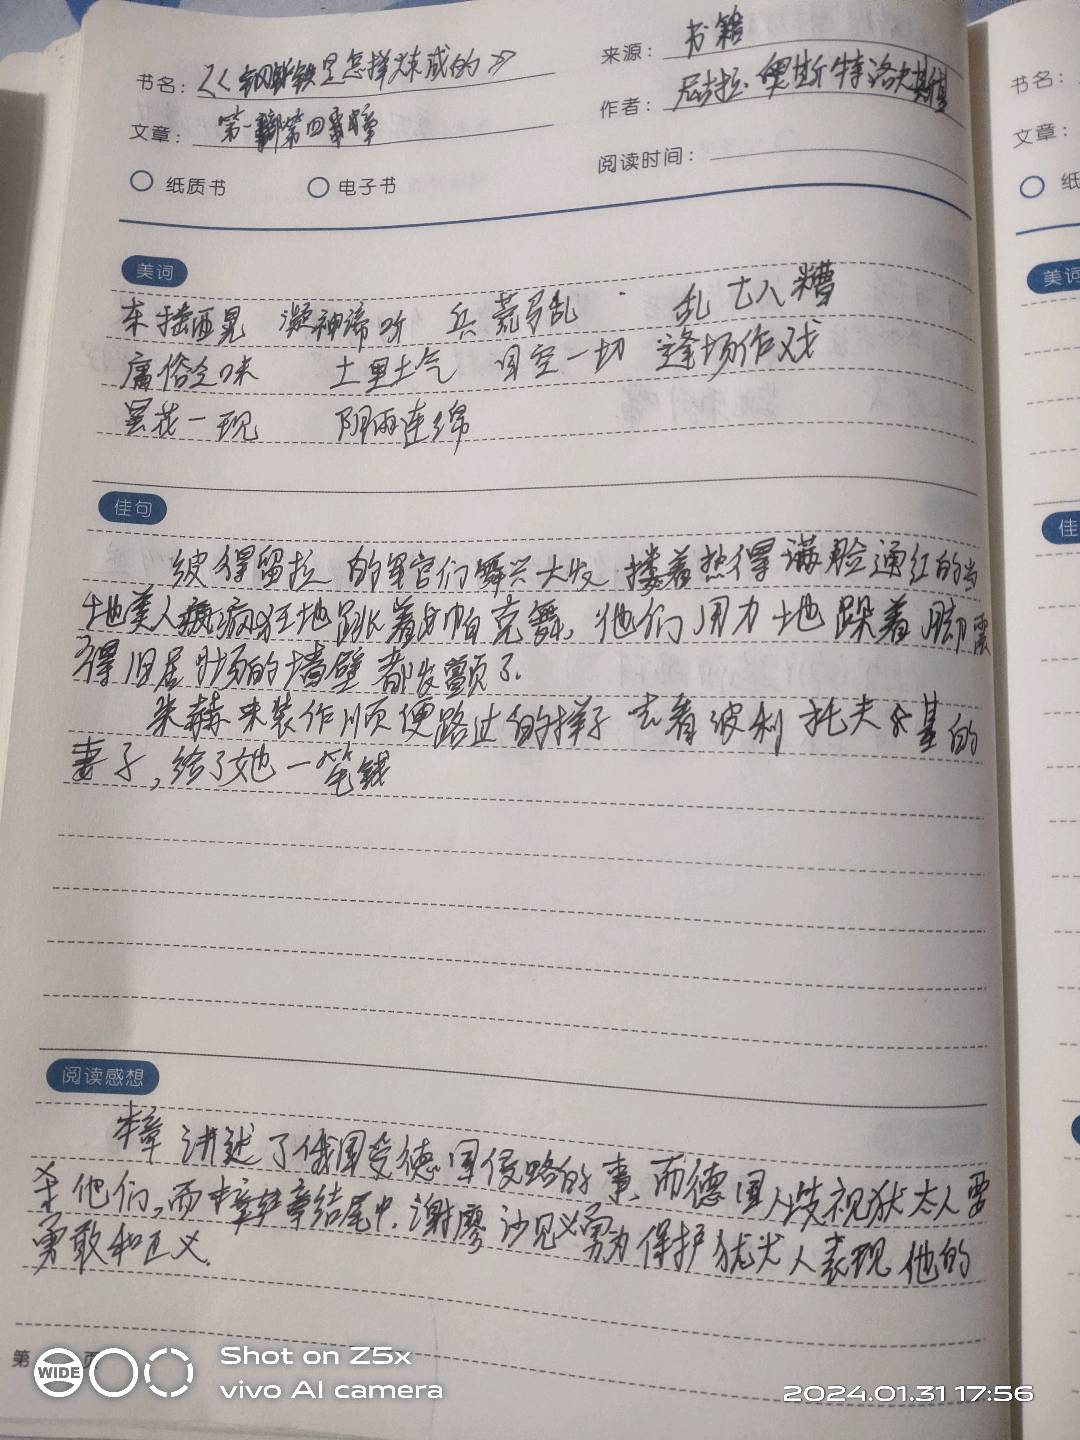 书名：《钢铁是怎样炼成的》
来源：书籍
作者：尼古拉·奥斯特洛夫斯基
文章：第一部第四章
阅读时间：
纸质书 电子书
美词
东摇西晃 凝神谛听 兵荒马乱 乱七八糟
庸俗乏味 土里土气 目空一切 逢场作戏
昙花一现 阴雨连绵
佳句
彼得留拉的军官们舞兴大发，搂着热得满脸通红的当
地美人疯狂地跳着帕克舞，他们用力地跺着脚震
得旧屋的墙壁都发颤了.
装作顺便路过的样子去看波利托夫基的
妻子，给了她一笔钱
阅读感想
本章讲述了俄国受德国侵略的事，而德国人歧视犹太人要
杀他们，而本章结尾中，谢廖沙见义勇为保护犹太人表现他的
勇敢和正义.
第 页
WIDE
Shot on Z5x
vivo AI camera
2024.01.31 17:56
书名：
文章：
纸
美词
佳